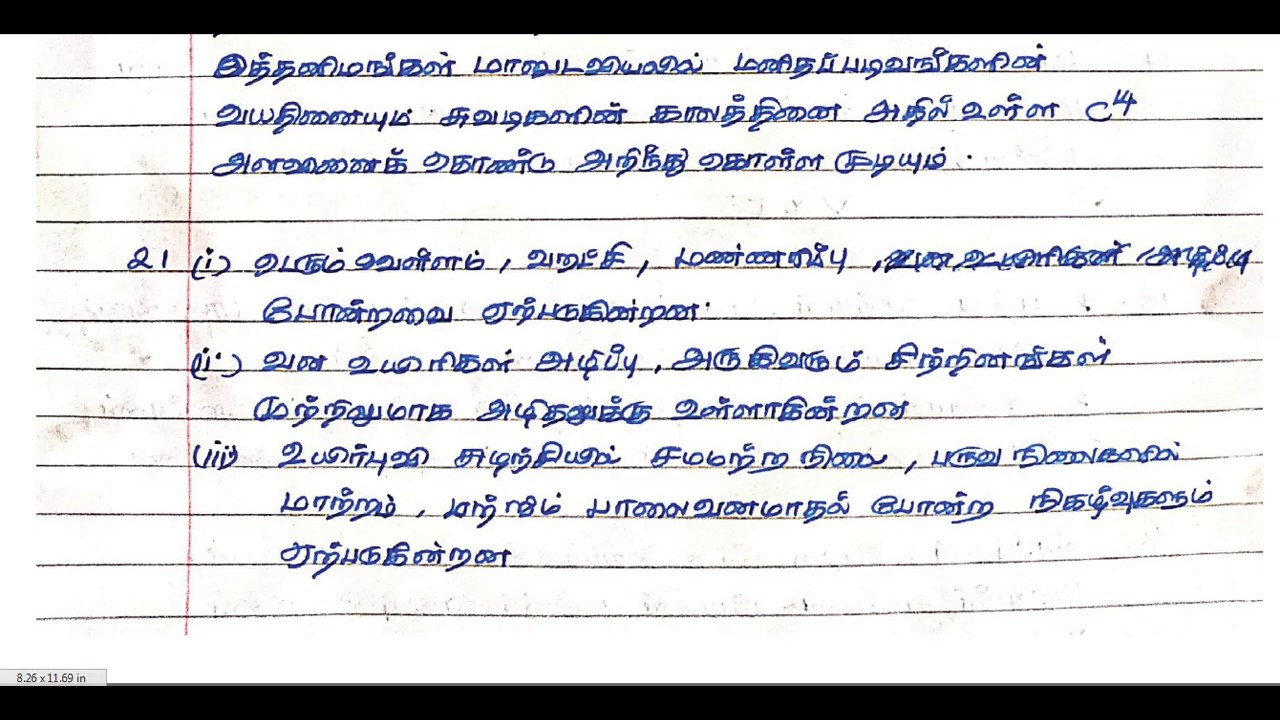 இத்தனிமங்கள் மானுடவியலில் மனிதப்படிவங்களின்
வயதினையும் சுவடிகளின் காலத்தினை அதில் உள்ள C14
அளவினைக் கொண்டு அறிந்து கொள்ள முடியும்.
21 (i) பெரும் வெள்ளம், வறட்சி, மண்ணரிப்பு,
போன்றவை ஏற்படுகின்றன.
(ii) வன உயிரிகள் அழிப்பு, அருகிவரும் சிற்றினங்கள்
முற்றிலுமாக அழிதலுக்கு உள்ளாகின்றன
(iii) உயிர்புவி சுழற்சியில் சமமற்ற நிலை, பருவ நிலைகளில்
மாற்றம், மற்றும் பாலைவனமாதல் போன்ற நிகழ்வுகளும்
ஏற்படுகின்றன
8.26 x 11.69 in